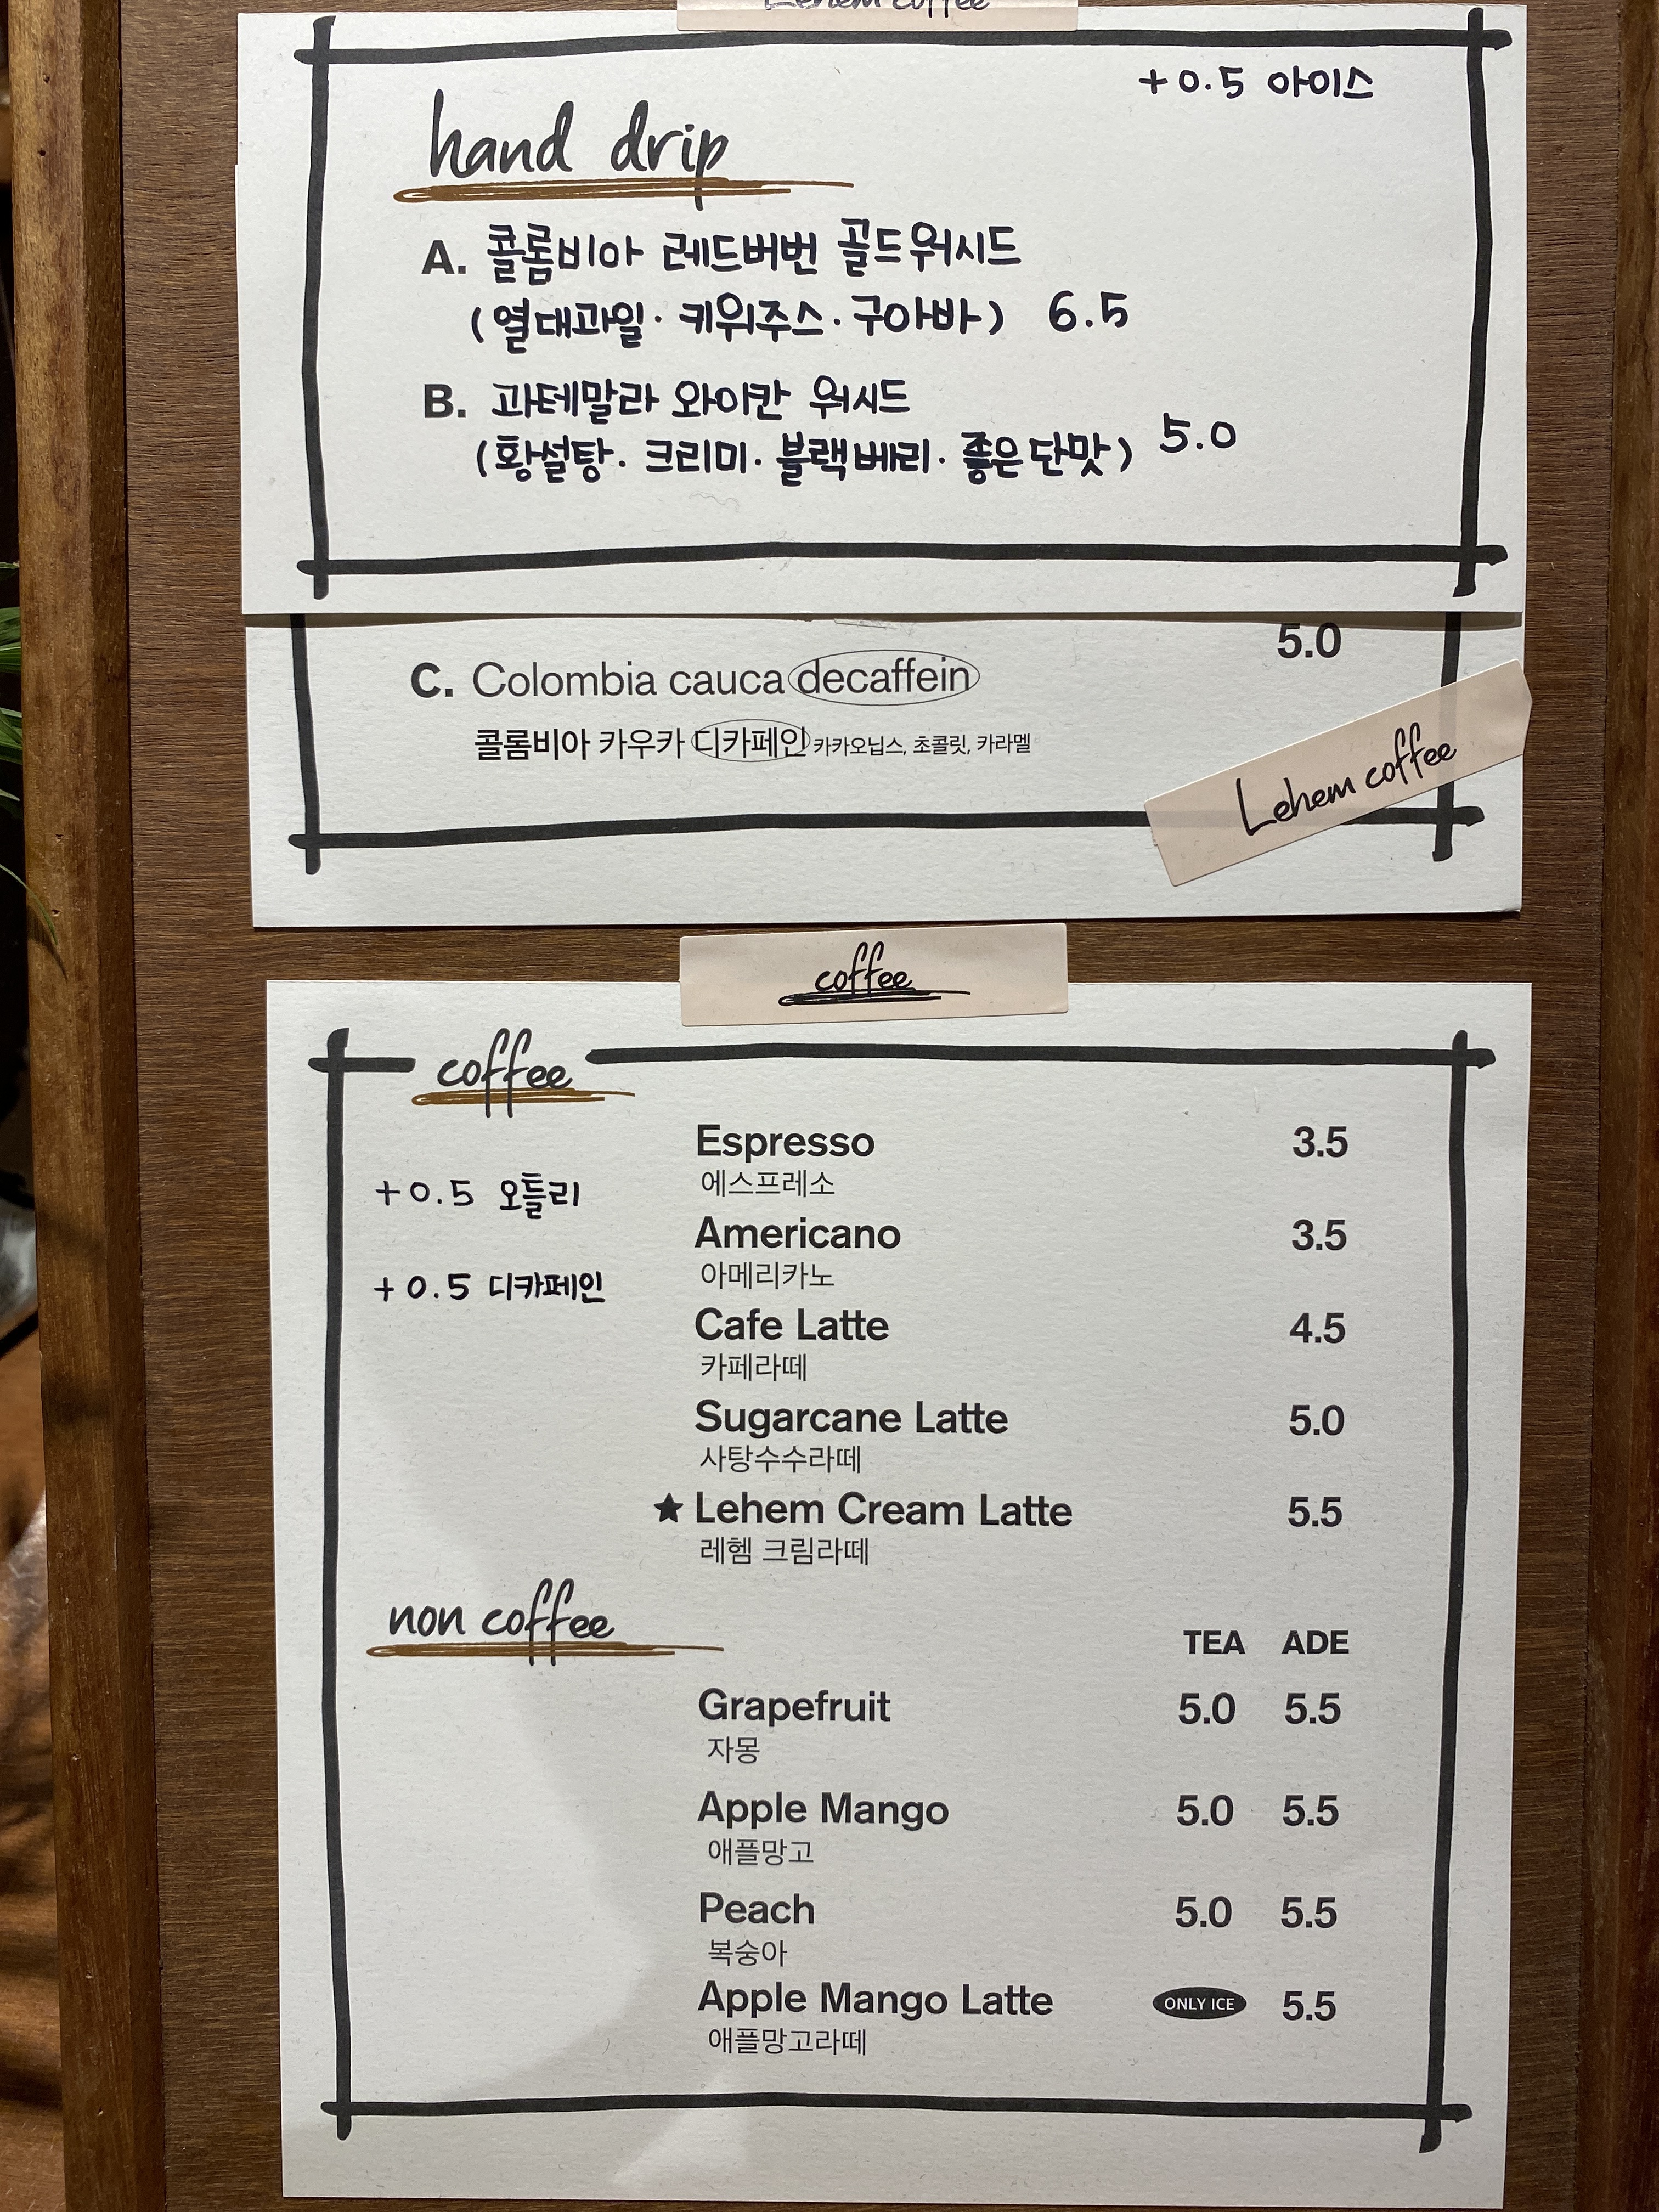 Lehem coffee
+0.5 아이스
hand drip
A. 콜롬비아 레드버번 골드워시드
(열대과일·키위주스·구아바) 6.5
B. 과테말라 와이칸 워시드
(황설탕·크리미·블랙베리·좋은단맛) 5.0
C. Colombia cauca decaffein 5.0
콜롬비아 카우카 디카페인 카카오닙스, 초콜릿, 카라멜
Lehem coffee
coffee
coffee
Espresso 3.5
에스프레소
+0.5 오틀리
Americano 3.5
아메리카노
+0.5 디카페인
Cafe Latte 4.5
카페라떼
Sugarcane Latte 5.0
사탕수수라떼
★ Lehem Cream Latte 5.5
레헴 크림라떼
non coffee
TEA ADE
Grapefruit 5.0 5.5
자몽
Apple Mango 5.0 5.5
애플망고
Peach 5.0 5.5
복숭아
Apple Mango Latte ONLY ICE 5.5
애플망고라떼